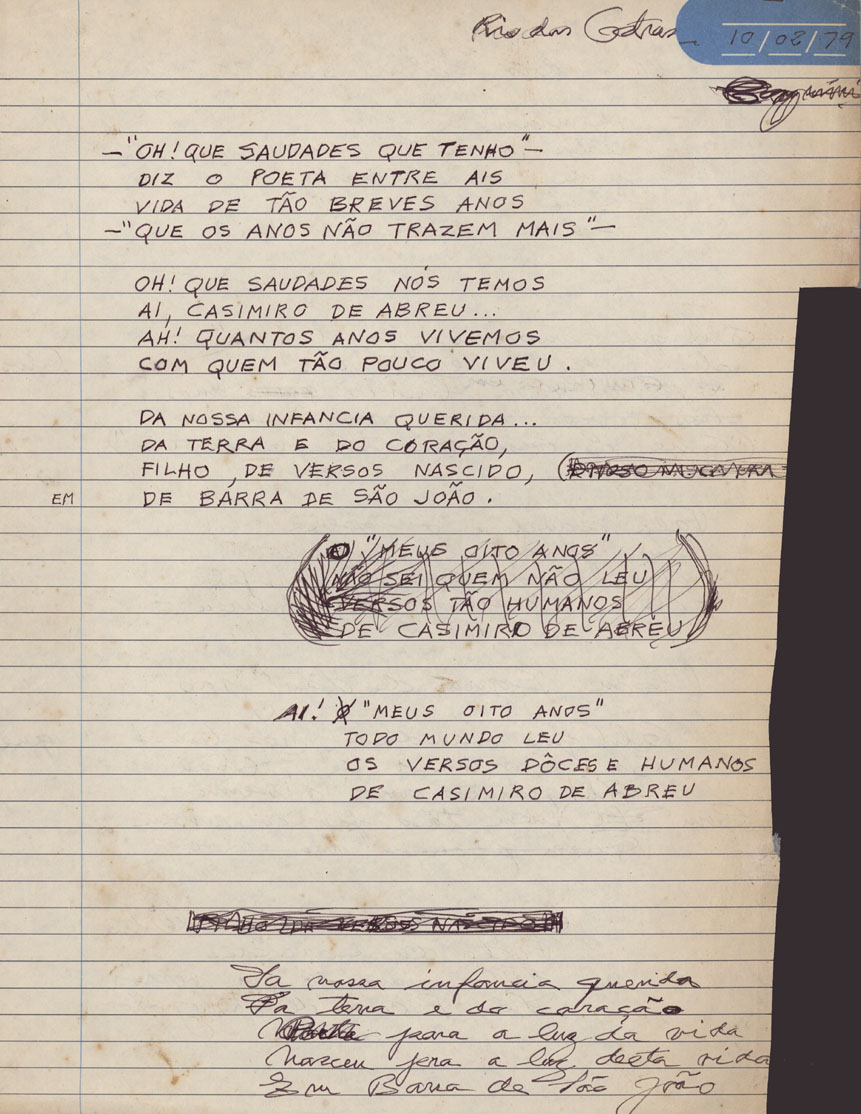 Rio das Ostras
10/02/79
—"OH! QUE SAUDADES QUE TENHO"—
DIZ O POETA ENTRE AIS
VIDA DE TÃO BREVES ANOS
—"QUE OS ANOS NÃO TRAZEM MAIS"—
OH! QUE SAUDADES NÓS TEMOS
AI, CASIMIRO DE ABREU...
AH! QUANTOS ANOS VIVEMOS
COM QUEM TÃO POUCO VIVEU.
DA NOSSA INFANCIA QUERIDA...
DA TERRA E DO CORAÇÃO,
FILHO, DE VERSOS NASCIDO, (
EM DE BARRA DE SÃO JOÃO.
(O "MEUS OITO ANOS"
NÃO SEI QUEM NÃO LEU
VERSOS TÃO HUMANOS
DE CASIMIRO DE ABREU)
AI! O "MEUS OITO ANOS"
TODO MUNDO LEU
OS VERSOS DÔCES E HUMANOS
DE CASIMIRO DE ABREU
FILHO DE VERSOS NASCIDO
Da nossa infancia querida
Da terra e do coração
para a luz da vida
Nasceu pera a luz desta vida
Em Barra de São João